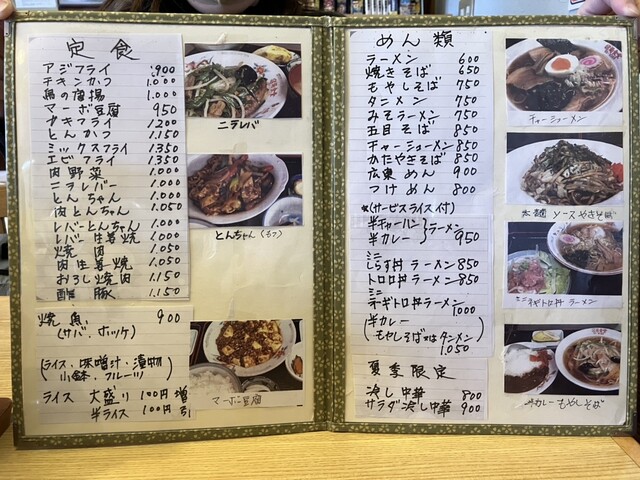 定食
アジフライ 900
チキンカツ 1.000
鳥の唐揚 1.000
マーボ豆腐 950
カキフライ 1200
とんかつ 1.150
ミックスフライ 1350
エビフライ 1350
肉野菜 1.000
ニラレバー 1.000
とんちゃん 1.000
肉とんちゃん 1.050
レバーとんちゃん 1.000
レバー生姜焼 1.000
焼肉 1.050
肉生姜焼 1.050
おろし焼肉 1.150
酢豚 1.150
焼魚 900
(サバ、ホッケ)
(ライス、味噌汁、漬物
小鉢、フルーツ)
ライス 大盛り 100円増
半ライス 100円引
ニラレバ
とんちゃん(モツ)
マーボ豆腐
めん類
ラーメン 600
焼きそば 650
もやしそば 750
タンメン 750
みそラーメン 750
五目そば 850
チャーシューメン 850
かたやきそば 850
広東めん 900
つけめん 800
☆(サービスライス付)
半チャーハン
半カレー }ラーメン 950
ミニ
しらす丼ラーメン 850
トロロ丼ラーメン 850
ミニ
ネギトロ丼ラーメン
1000
(半カレー
もやしそば又はタンメン)
1.050
夏季限定
冷し中華 800
サラダ冷し中華 900
チャーシューメン
太麺 ソースやきそば
ミニネギトロ丼 ラーメン
半カレー もやしそば